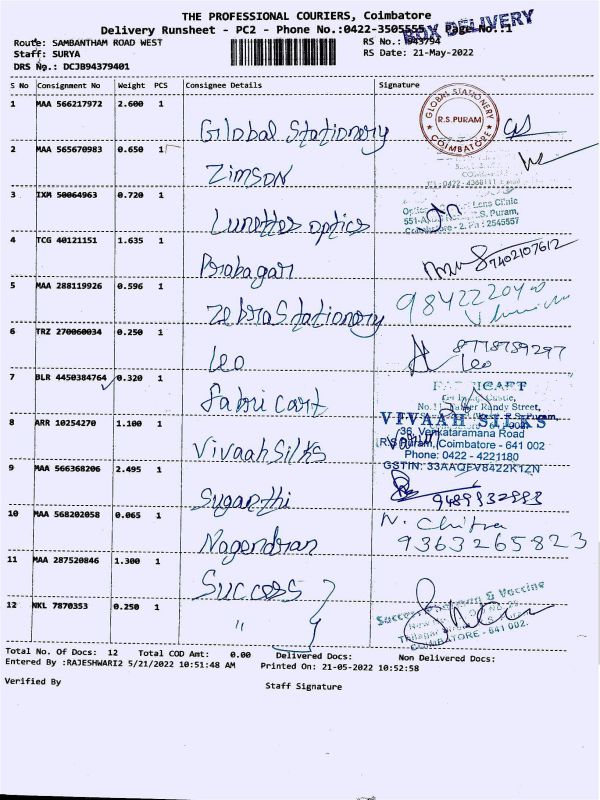 THE PROFESSIONAL COURIERS, Coimbatore
Delivery Runsheet - PC2 - Phone No.:0422-3505555 Page No.:1
BOX DELIVERY
Route: SAMBANTHAM ROAD WEST RS No.: 943794
Staff: SURYA RS Date: 21-May-2022
DRS No.: DCJB94379401
S No Consignment No Weight PCS Consignee Details Signature
1 MAA 566217972 2.600 1 Global Stationery
GLOBAL STATIONERY
R.S.PURAM
COIMBATORE
2 MAA 565670983 0.650 1 Zimson
3 IXM 50064963 0.720 1 Lunettes optics
Lens Clinic
R.S. Puram,
Coimbatore - 2. Ph : 2545557
4 TCG 40121151 1.635 1 Prabagari
7402107612
5 MAA 288119926 0.596 1 Zebra Stationery
6 TRZ 270060034 0.250 1 Leo
8778759297
Leo
7 BLR 4450384764 0.320 1 Fabri cart
8 ARR 10254270 1.100 1 Vivaah Silks
VIVAAH SILKS
36, Venkataramana Road
R.S.Puram, Coimbatore - 641 002
Phone: 0422 - 4221180
GSTIN: 33AAQFV8422K1ZN
9 MAA 566368206 2.495 1 Suganthi
9489932993
10 MAA 568202058 0.065 1 Nagendran
N. Chitra
9363265823
11 MAA 287520846 1.300 1 Success
12 NKL 7870353 0.250 1 "
Vaccine
COIMBATORE - 641 002.
Total No. Of Docs: 12 Total COD Amt: 0.00 Delivered Docs: Non Delivered Docs:
Entered By :RAJESHWARI2 5/21/2022 10:51:48 AM Printed On: 21-05-2022 10:52:58
Verified By Staff Signature